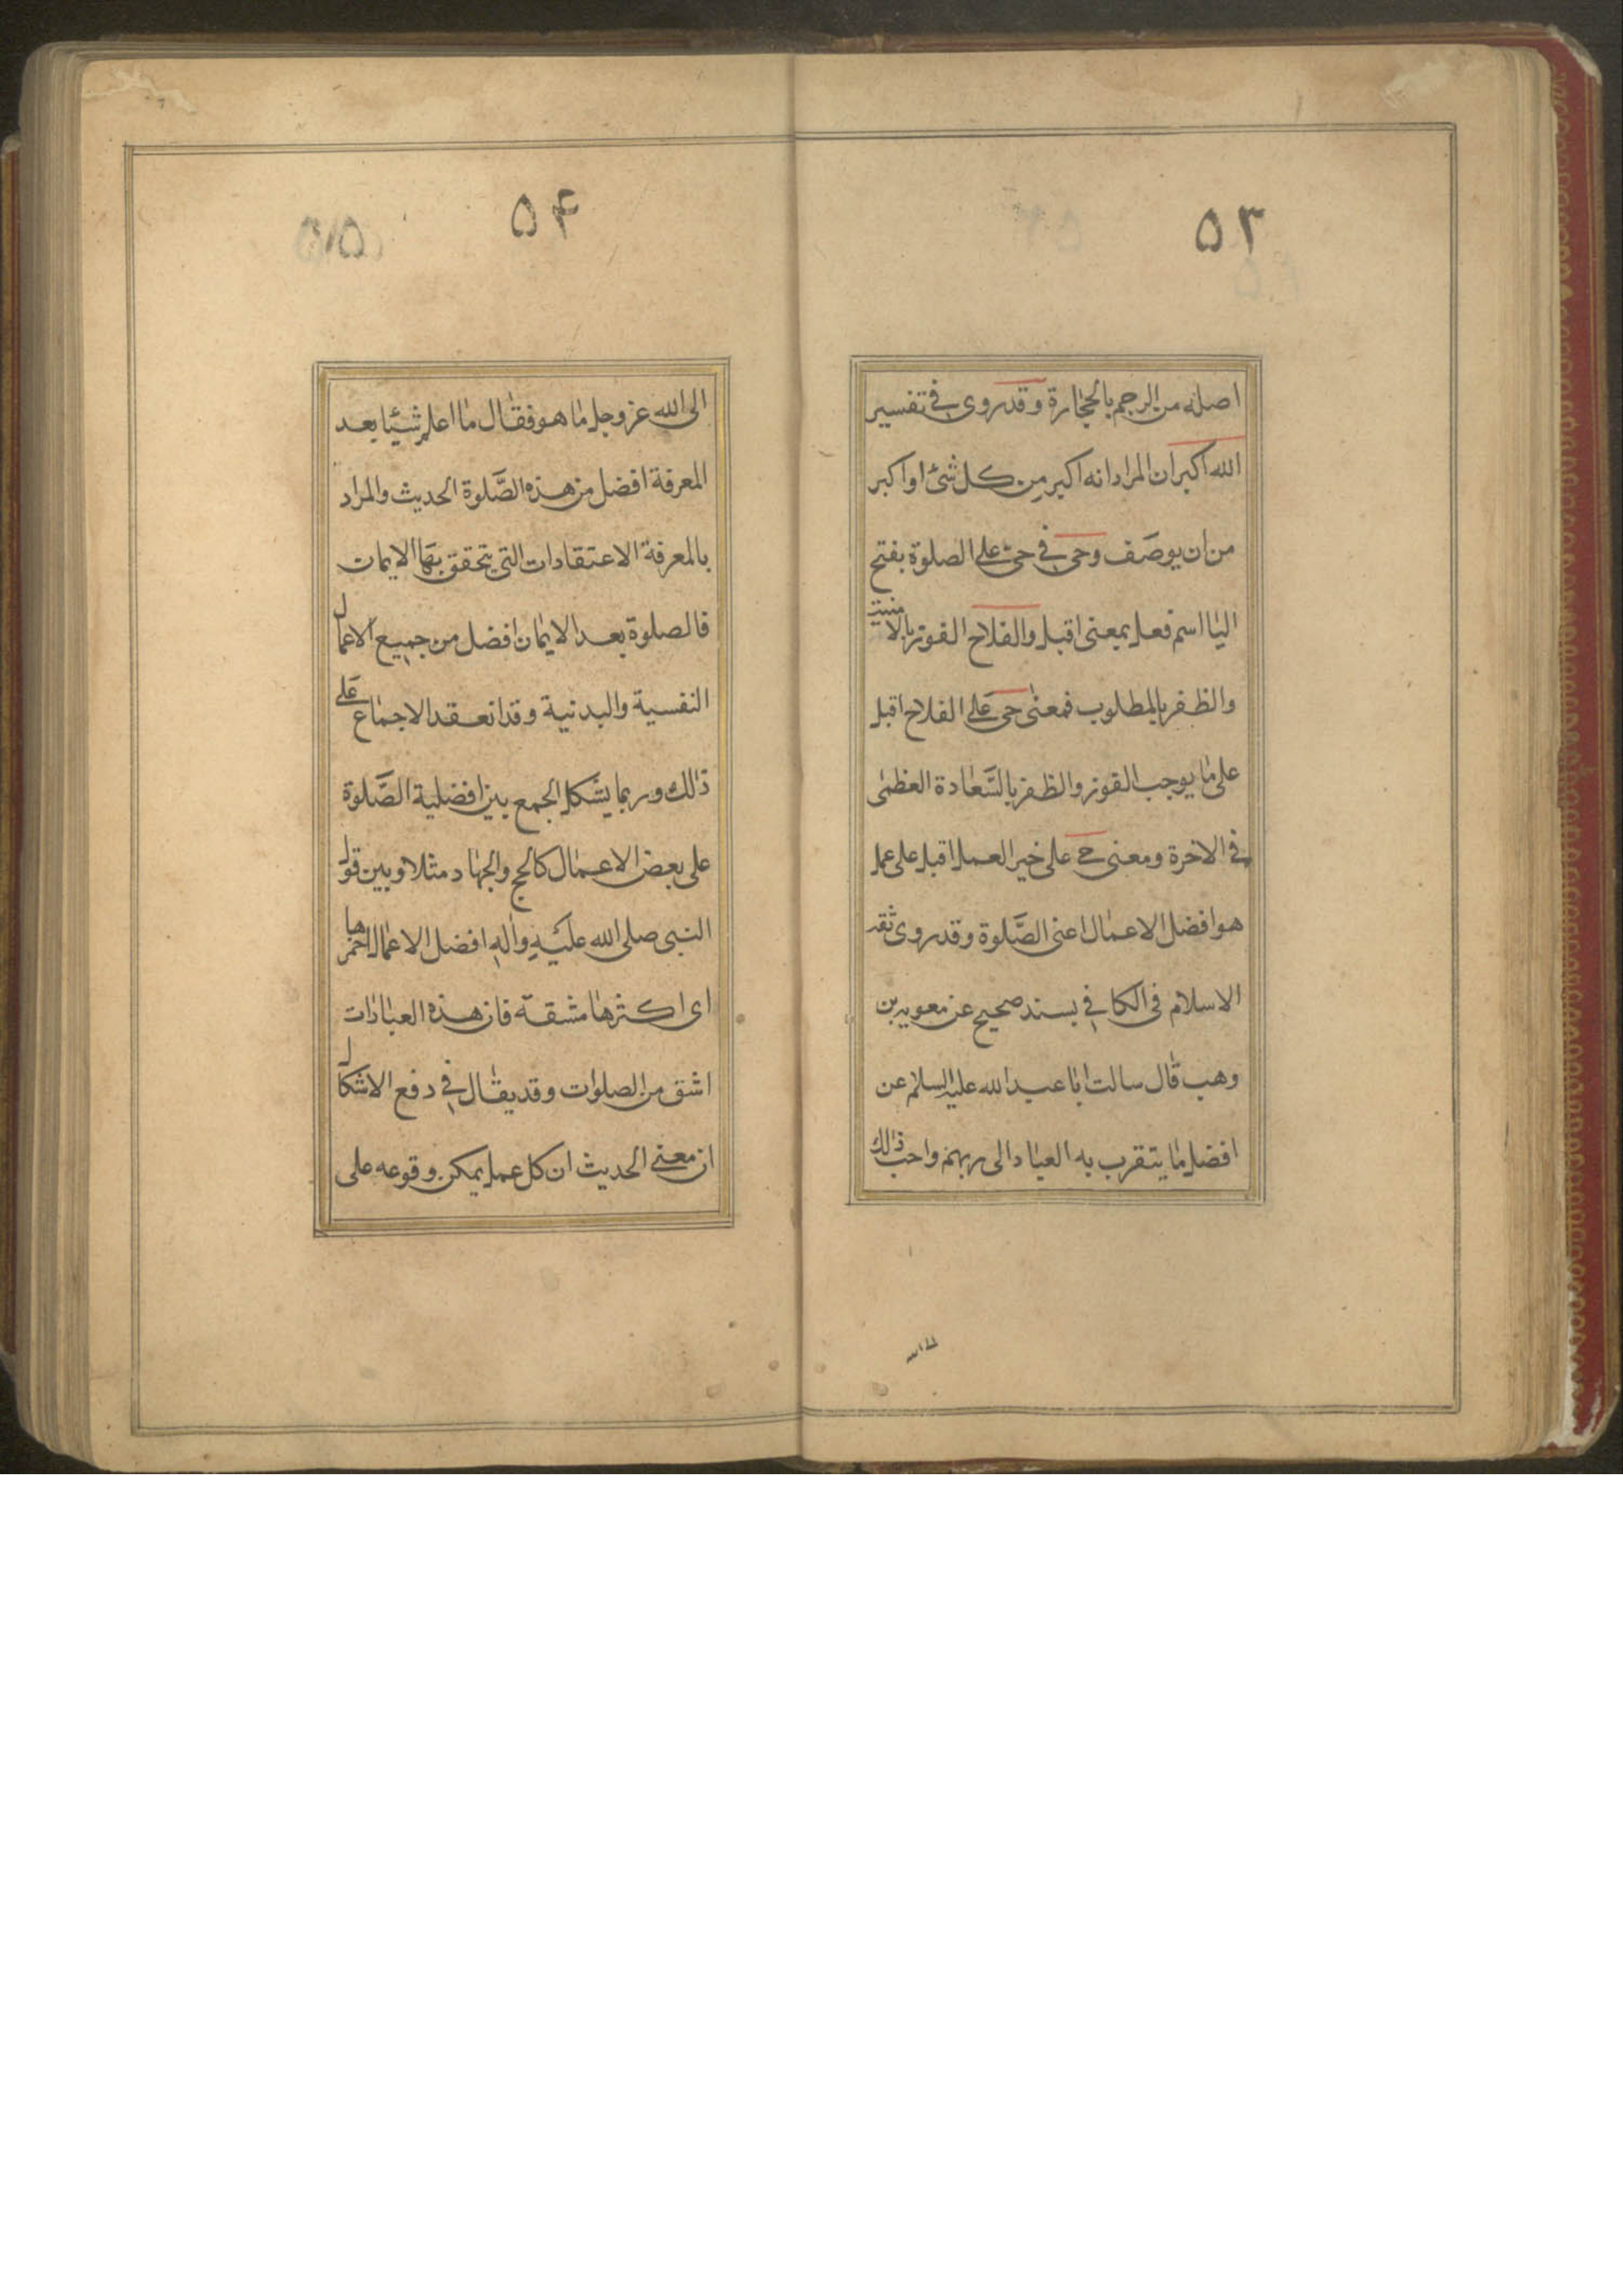 ۵۳
اصله من الرجم بالحجارة وقد روى في تفسير
الله اكبر ان المراد انه اكبر من كل شئ او اكبر
من ان يوصف وحى في حى على الصلوة بفتح
اليا اسم فعل بمعنى اقبل والفلاح الفوز بالامنية
والظفر بالمطلوب فمعنى حى على الفلاح اقبل
على ما يوجب الفوز والظفر بالسَّعادة العظمى
في الاخرة ومعنى حى على خير العمل اقبل على عمل
هو افضل الاعمال اعنى الصَّلوة وقد روى ثقة
الاسلام فى الكافي بسند صحيح عن معوية بن
وهب قال سالت ابا عبد الله عليه السلام عن
افضل ما يتقرب به العباد الى ربهم واحب ذلك
۵۴
الى الله عز وجل ما هو فقال ما اعلم شيئا بعد
المعرفة افضل من هذه الصَّلوة الحديث والمراد
بالمعرفة الاعتقادات التي يتحقق بها الايمان
فالصلوة بعد الايمان افضل من جميع الاعمال
النفسية والبدنية وقد انعقد الاجماع على
ذلك وربما يشكل الجمع بين افضلية الصَّلوة
على بعض الاعمال كالحج والجهاد مثلا وبين قول
النبى صلى الله عليه واله افضل الاعمال احمزها
اى اكثرها مشقة فان هذه العبادات
اشق من الصلوات وقد يقال في دفع الاشكال
ان معنى الحديث ان كل عمل يمكن وقوعه على